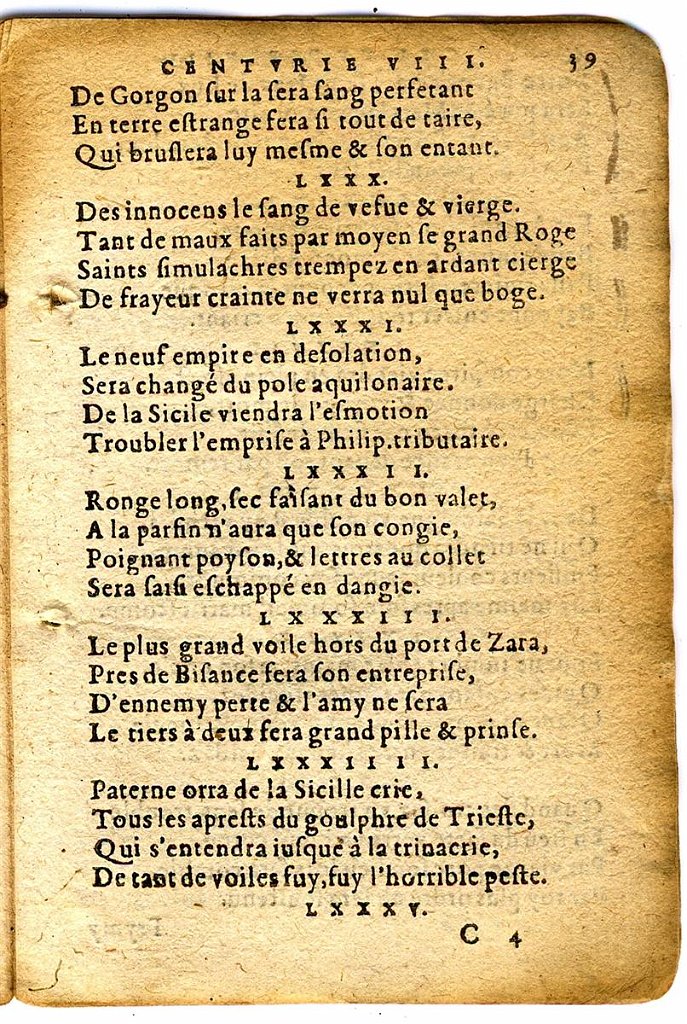 CENTVRIE VIII. 39
De Gorgon ſur la ſera ſang perfetant
En terre eſtrange ſera ſi tout de taire,
Qui bruſlera luy meſme & ſon entant.
LXXX.
Des innocens le ſang de vefue & vierge.
Tant de maux faits par moyen ſe grand Roge
Saints ſimulachres trempez en ardant cierge
De frayeur crainte ne verra nul que boge.
LXXXI.
Le neuf empire en deſolation,
Sera changé du pole aquilonaire.
De la Sicile viendra l'eſmotion
Troubler l'empriſe à Philip.tributaire.
LXXXII.
Ronge long,ſec faiſant du bon valet,
A la parfin n'aura que ſon congie,
Poignant poyſon,& lettres au collet
Sera ſaiſi eſchappé en dangie.
LXXXIII.
Le plus grand voile hors du port de Zara,
Pres de Biſance fera ſon entrepriſe,
D'ennemy perte & l'amy ne ſera
Le tiers à deux fera grand pille & prinſe.
LXXXIIII.
Paterne orra de la Sicille crie,
Tous les apreſts du goulphre de Trieſte,
Qui s'entendra iuſque à la trinacrie,
De tant de voiles fuy,fuy l'horrible peſte.
LXXXV.
C 4